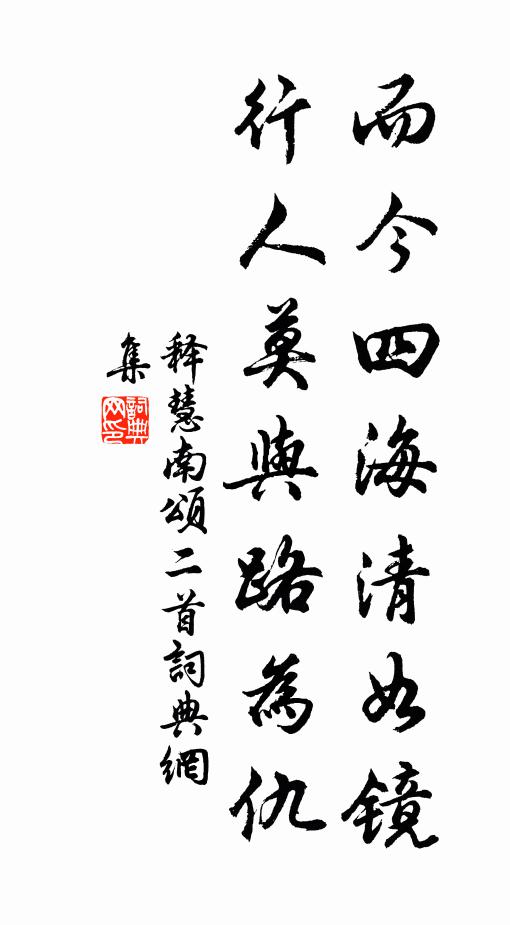 而今四海清如镜
行人莫與路為仇
释慧南頌二首詞典網
集
詞典网印